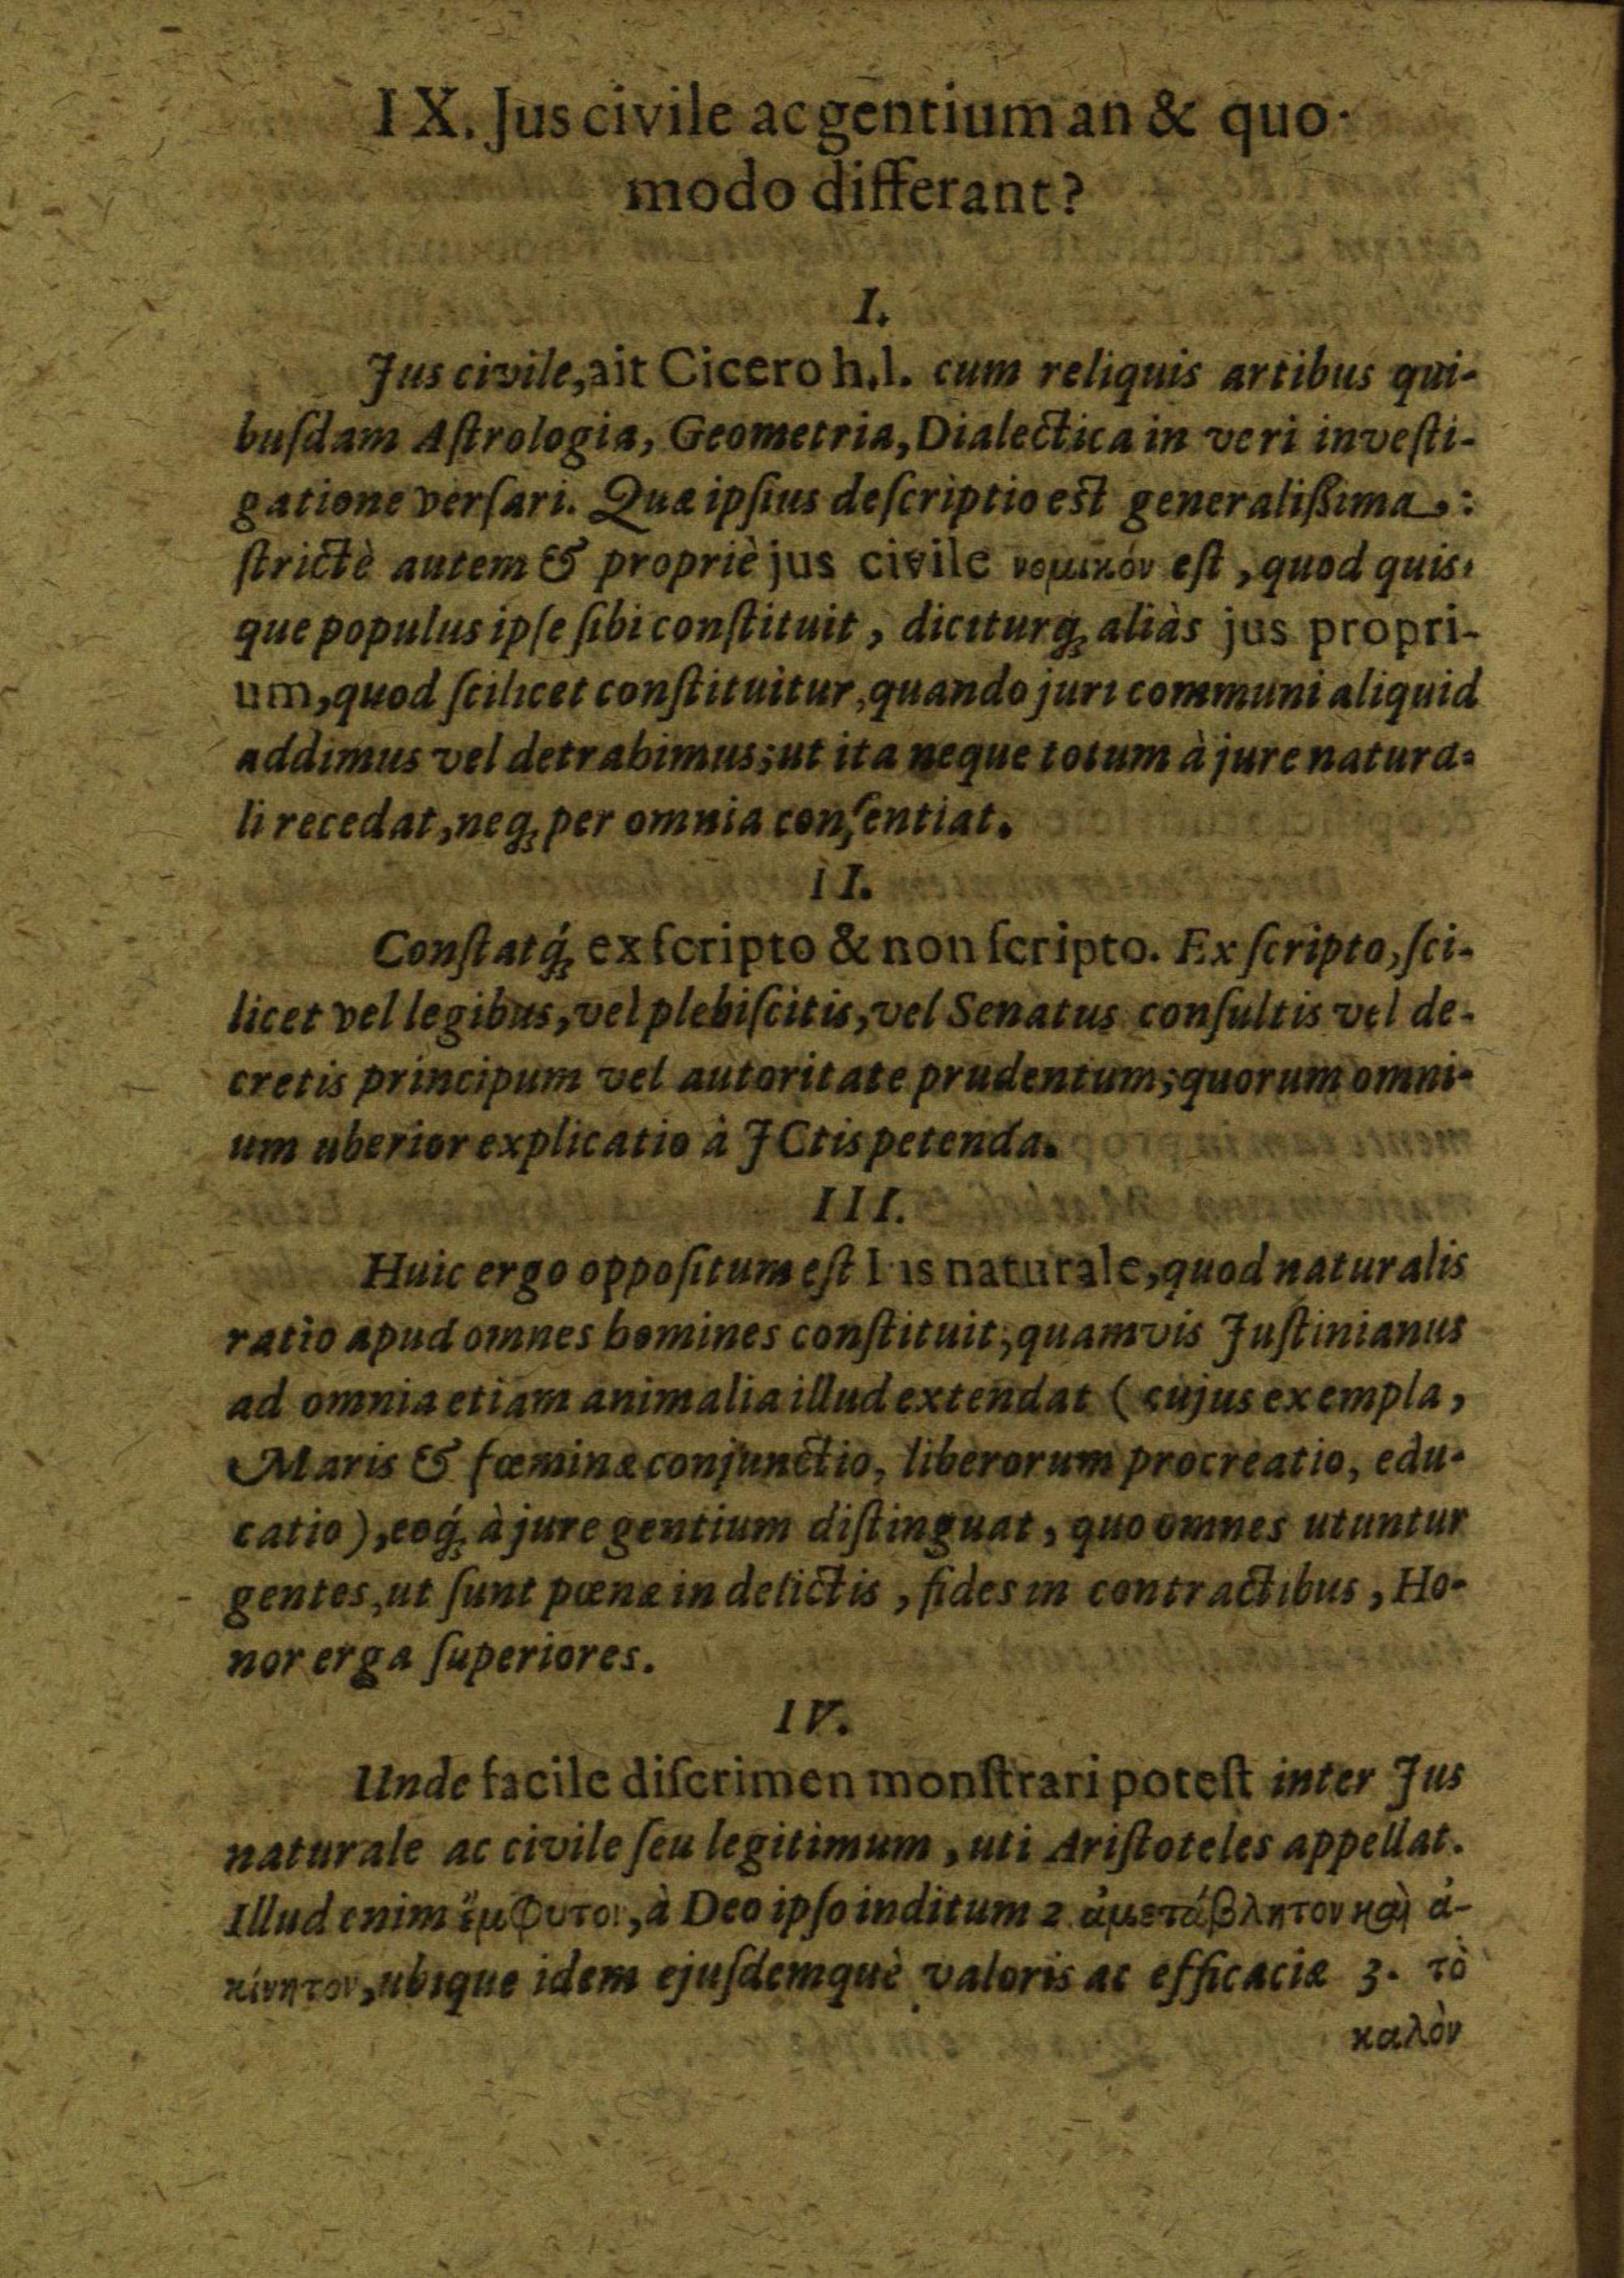 IX. Jus civile ac gentium an & quo-
modo differant?
I.
Jus civile, ait Cicero h.l. cum reliquis artibus qui-
buſdam Aſtrologia, Geometria, Dialectica in veri inveſti-
gatione verſari. Quæ ipſius deſcriptio est generaliſſima:
ſtrictè autem & propriè jus civile νομικόν eſt, quod quis-
que populus ipſe ſibi conſtituit, diciturq́; aliàs jus propri-
um, quod ſcilicet conſtituitur, quando juri communi aliquid
addimus vel detrahimus; ut ita neque totum à jure natura-
li recedat, neq; per omnia conſentiat.
II.
Conſtatq́; ex ſcripto & non ſcripto. Ex ſcripto, ſci-
licet vel legibus, vel plebiſcitis, vel Senatus conſultis vel de-
cretis principum vel autoritate prudentum; quorum omni-
um uberior explicatio à JCtis petenda.
III.
Huic ergo oppoſitum eſt Ius naturale, quod naturalis
ratio apud omnes homines conſtituit; quamvis Juſtinianus
ad omnia etiam animalia illud extendat (cujus exempla,
Maris & fœminæ conjunctio, liberorum procreatio, edu-
catio), eoq́; à jure gentium diſtinguat, quo omnes utuntur
gentes, ut ſunt pœnæ in delictis, fides in contractibus, Ho-
nor erga ſuperiores.
IV.
Unde facile diſcrimen monſtrari poteſt inter Jus
naturale ac civile ſeu legitimum, uti Ariſtoteles appellat.
Illud enim ἔμφυτον, à Deo ipſo inditum 2. ἀμετάβλητον καὶ ἀ-
κίνητον, ubique idem ejuſdemquè valoris ac efficaciæ 3. τὸ
καλὸν